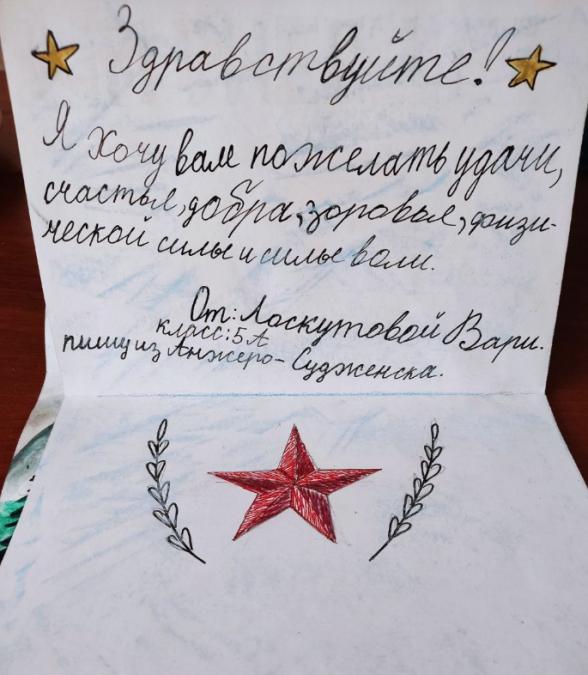 Здравствуйте!
Я хочу вам пожелать удачи,
счастья, добра, здоровья, физи-
ческой силы и силы воли.
От: Ласкутовой Вари.
класс: 5 А
пишу из Анжеро-Судженска.